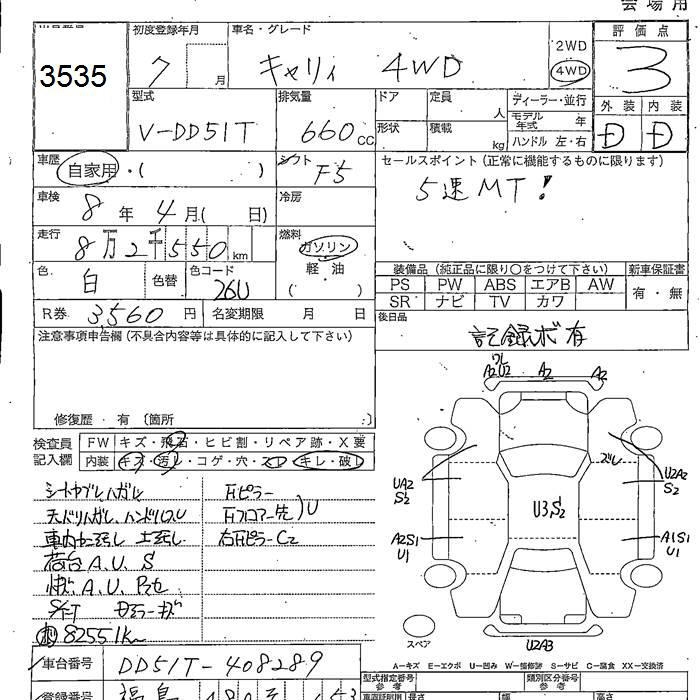 会場用
3535
初度登録年月
7 月
車名・グレード
キャリィ 4WD
2WD
4WD
評価点
3
外装 内装
D D
型式
V-DD51T
排気量
660 CC
ドア
定員 人
形状
積載 kg
ディーラー・並行
モデル年式 年
ハンドル 左・右
車歴
自家用・( )
シフト
F5
セールスポイント(正常に機能するものに限ります)
5速MT!
車検
8年4月( 日)
冷房
走行
8万2千550km
燃料
ガソリン
軽油
( )
色
白
色替
色コード
26U
装備品(純正品に限り○をつけて下さい)
PS PW ABS エアB AW
SR ナビ TV カワ
新車保証書
有・無
R券 3,560円
名変期限 月 日
後日品
記録ボ有
注意事項申告欄(不具合内容等は具体的に記入して下さい)
修復歴・有〔箇所 〕
検査員記入欄
FW キズ・飛石・ヒビ割・リペア跡・X要
内装 キズ・汚レ・コゲ・穴・スレ・キレ・破レ
荷台 A.U.S
82551km
車台番号
DD51T-408289
A2 U2
A2
A2
UA2
S2
A2S1
U1
U3,S2
ズレ
U2A2
S2
A1S1
U1
U2A3
スペア
A-キズ E-エクボ U-凹み W-補修跡 S-サビ C-腐食 XX-交換済
型式指定番号
参考
類別区分番号
参考
登録番号
福島